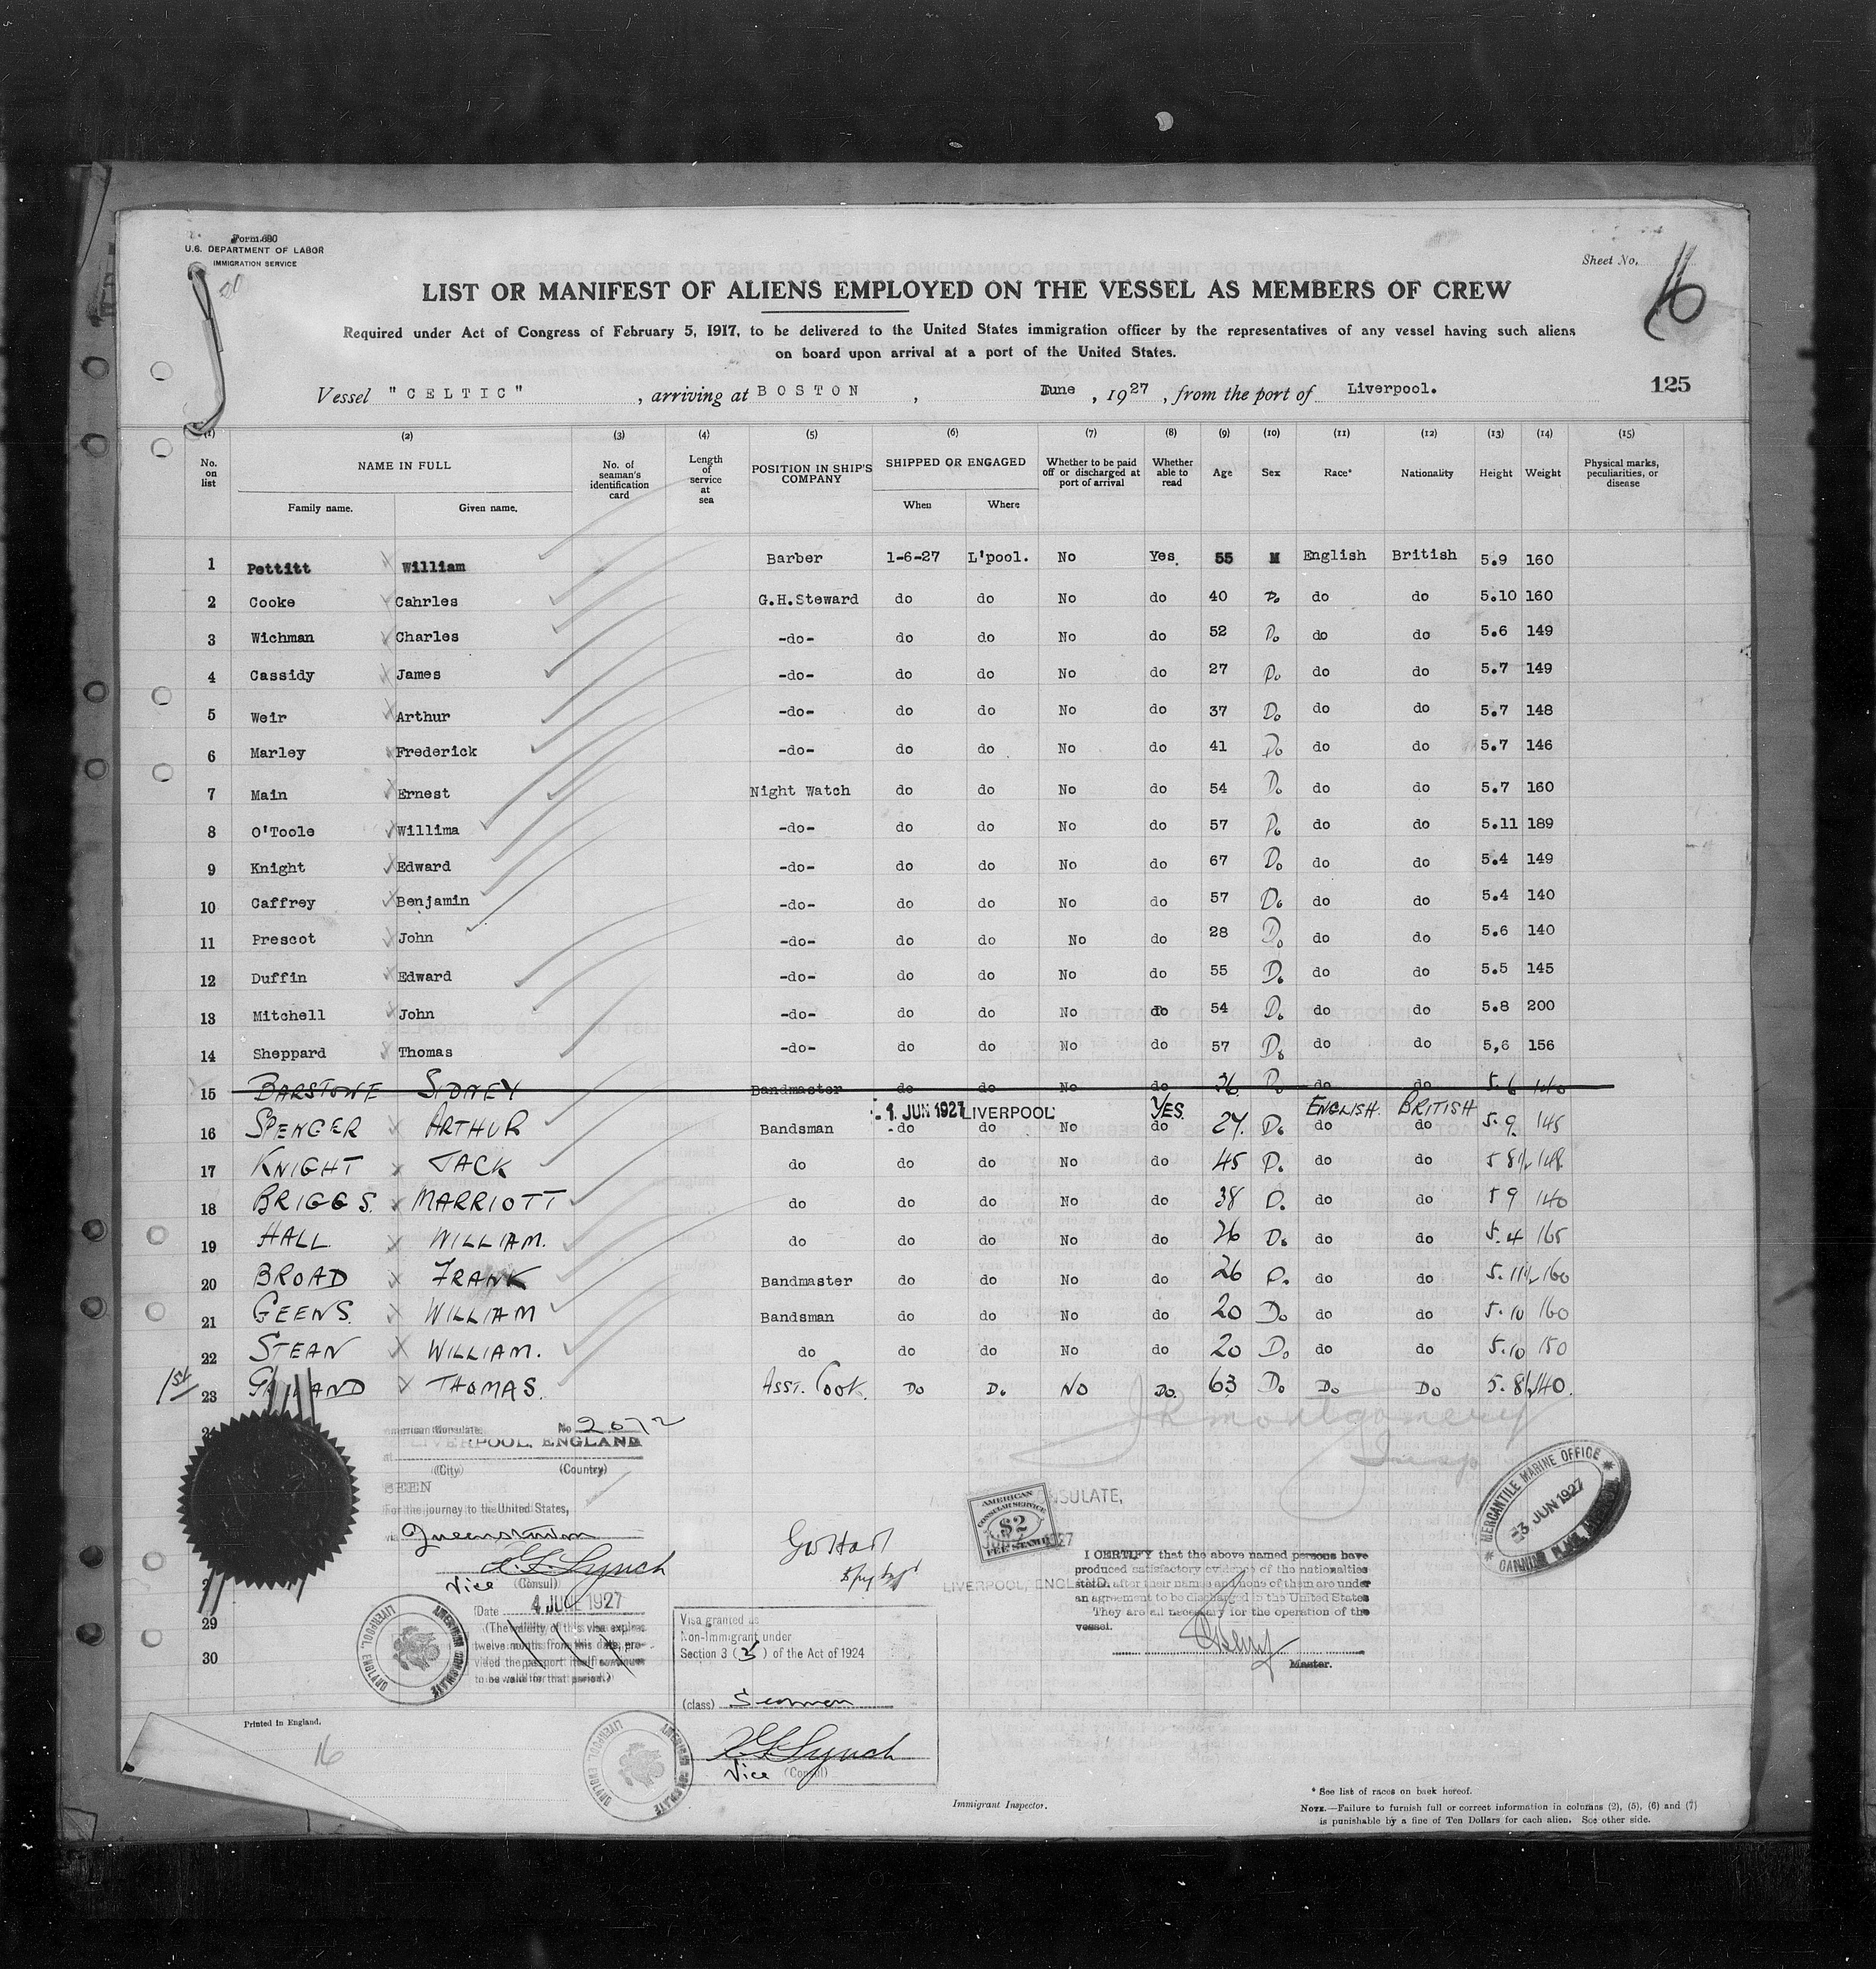 Form 680
U.S. DEPARTMENT OF LABOR
IMMIGRATION SERVICE
Sheet No. 16
LIST OR MANIFEST OF ALIENS EMPLOYED ON THE VESSEL AS MEMBERS OF CREW
Required under Act of Congress of February 5, 1917, to be delivered to the United States immigration officer by the representatives of any vessel having such aliens
on board upon arrival at a port of the United States.
125
Vessel "CELTIC", arriving at BOSTON, June, 1927, from the port of Liverpool.
(1) (2) (3) (4) (5) (6) (7) (8) (9) (10) (11) (12) (13) (14) (15)
No. on list NAME IN FULL No. of seaman's identification card Length of service at sea POSITION IN SHIP'S COMPANY SHIPPED OR ENGAGED Whether to be paid off or discharged at port of arrival Whether able to read Age Sex Race* Nationality Height Weight Physical marks, peculiarities, or disease
Family name. Given name. When Where
1 Pettitt William Barber 1-6-27 L'pool. No Yes. 55 M English British 5.9 160
2 Cooke Cahrles G.H.Steward do do No do 40 Do do do 5.10 160
3 Wichman Charles -do- do do No do 52 Do do do 5.6 149
4 Cassidy James -do- do do No do 27 Do do do 5.7 149
5 Weir Arthur -do- do do No do 37 Do do do 5.7 148
6 Marley Frederick -do- do do No do 41 Do do do 5.7 146
7 Main Ernest Night Watch do do No do 54 Do do do 5.7 160
8 O'Toole Willima -do- do do No do 57 Do do do 5.11 189
9 Knight Edward -do- do do No do 67 Do do do 5.4 149
10 Caffrey Benjamin -do- do do No do 57 Do do do 5.4 140
11 Prescot John -do- do do No do 28 Do do do 5.6 140
12 Duffin Edward -do- do do No do 55 Do do do 5.5 145
13 Mitchell John -do- do do No do 54 Do do do 5.8 200
14 Sheppard Thomas -do- do do No do 57 Do do do 5,6 156
15 BARSTOWE SIDNEY Bandmaster do do No do 36 Do do do 5.6 140
-1 JUN 1927 LIVERPOOL YES. ENGLISH. BRITISH
16 SPENCER ARTHUR Bandsman do do No do 27. Do do do 5.9. 145
17 KNIGHT JACK do do do No do 45 Do do do 5 8½ 148
18 BRIGGS. MARRIOTT do do do No do 38 Do do do 5 9 140
19 HALL. WILLIAM. do do do No do 36 Do do do 5.4 165
20 BROAD FRANK Bandmaster do do No do 26 Do do do 5.11½ 160
21 GEENS. WILLIAM Bandsman do do No do 20 Do do do 5.10 160
22 STEAN WILLIAM. do do do No do 20 Do do do 5.10 150
1st 23 THOMAS. Asst. Cook. Do Do No Do. 63 Do Do Do 5.8½ 140.
JR Montgomery
Insp
American Consulate. No 2072
at LIVERPOOL, ENGLAND
(City) (Country)
SEEN
For the journey to the United States,
via Queenstown
Lynch
Vice (Consul)
Date 4 JUNE 1927
(The validity of this visa expires
twelve months from this date, pro-
vided the passport itself continues
to be valid for that period.)
29
30
AMERICAN CONSULATE LIVERPOOL, ENGLAND
AMERICAN
CONSULAR SERVICE
$2
FEE STAMP
LIVERPOOL, ENGLAND.
MERCANTILE MARINE OFFICE
-3 JUN 1927
CANNING PLACE, LIVERPOOL
I CERTIFY that the above named persons have
produced satisfactory evidence of the nationalities
stated after their names and none of them are under
an agreement to be discharged in the United States
They are all necessary for the operation of the
vessel.
Master.
Visa granted as
Non-Immigrant under
Section 3 (5) of the Act of 1924
(class) Seamen
Lynch
Vice (Consul)
Printed in England.
16
Immigrant Inspector.
* See list of races on back hereof.
NOTE.—Failure to furnish full or correct information in columns (2), (5), (6) and (7)
is punishable by a fine of Ten Dollars for each alien. See other side.